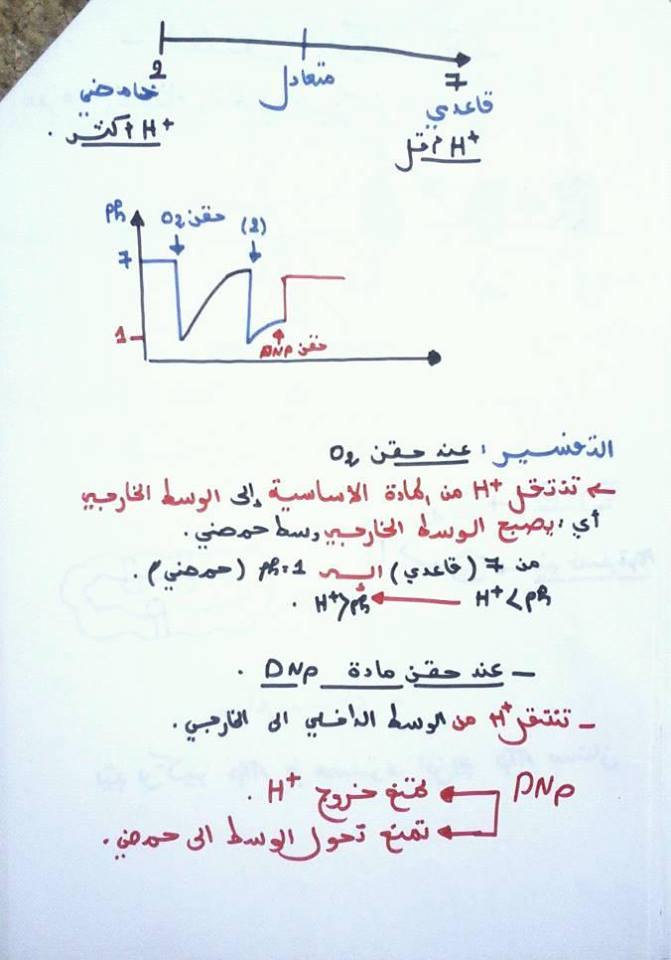 2 متعادل 7
حامضي قاعدي
H+ أكثر . H+ أقل
ph حقن O2 (2)
7
1
حقن DNP
التفسير : عند حقن O2
← تنتقل H+ من المادة الاساسية إلى الوسط الخارجي
أي : يصبح الوسط الخارجي وسط حمضي .
من 7 (قاعدي) الى ph=1 (حمضي) .
H+<ph ← H+>ph .
– عند حقن مادة DNP .
– تنتقل H+ من الوسط الداخلي الى الخارجي .
DNP ← تمنع خروج H+ .
← تمنع تحول الوسط الى حمضي .